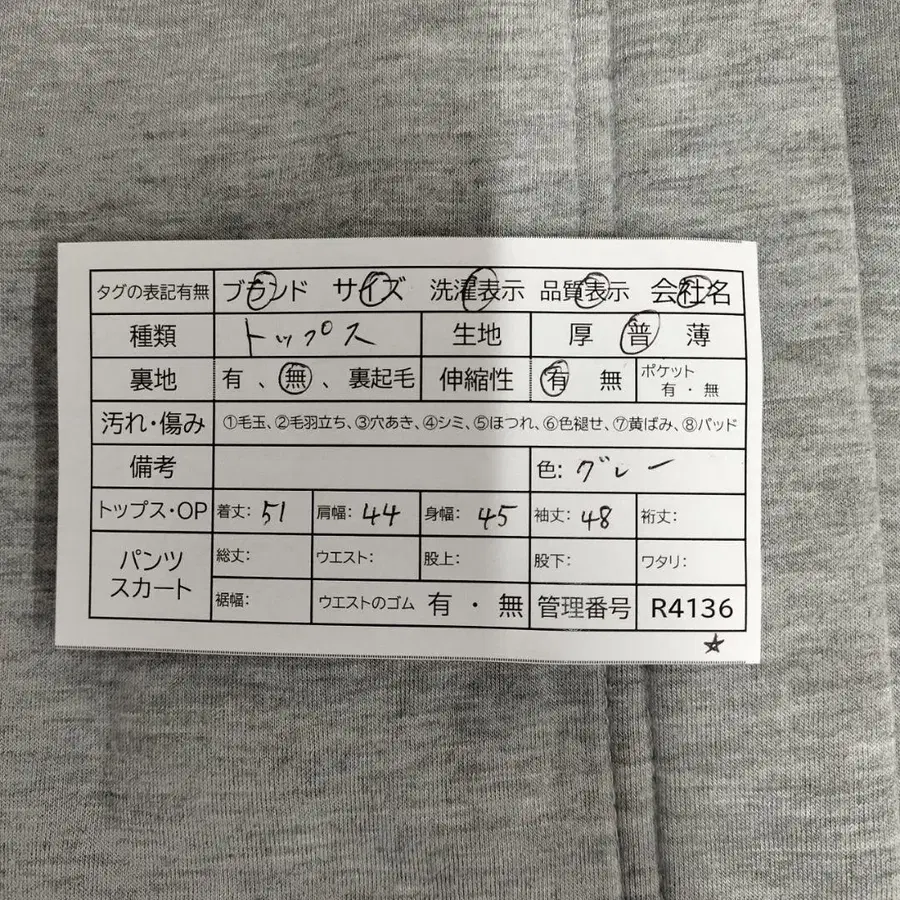 タグの表記有無 ブランド サイズ 洗濯表示 品質表示 会社名
種類 トップス 生地 厚 普 薄
裏地 有 、 無 、 裏起毛 伸縮性 有 無 ポケット 有 ・ 無
汚れ・傷み ①毛玉、②毛羽立ち、③穴あき、④シミ、⑤ほつれ、⑥色褪せ、⑦黄ばみ、⑧パッド
備考 色: グレー
トップス・OP 着丈: 51 肩幅: 44 身幅: 45 袖丈: 48 裄丈:
パンツ スカート 総丈: ウエスト: 股上: 股下: ワタリ:
裾幅: ウエストのゴム 有 ・ 無 管理番号 R4136